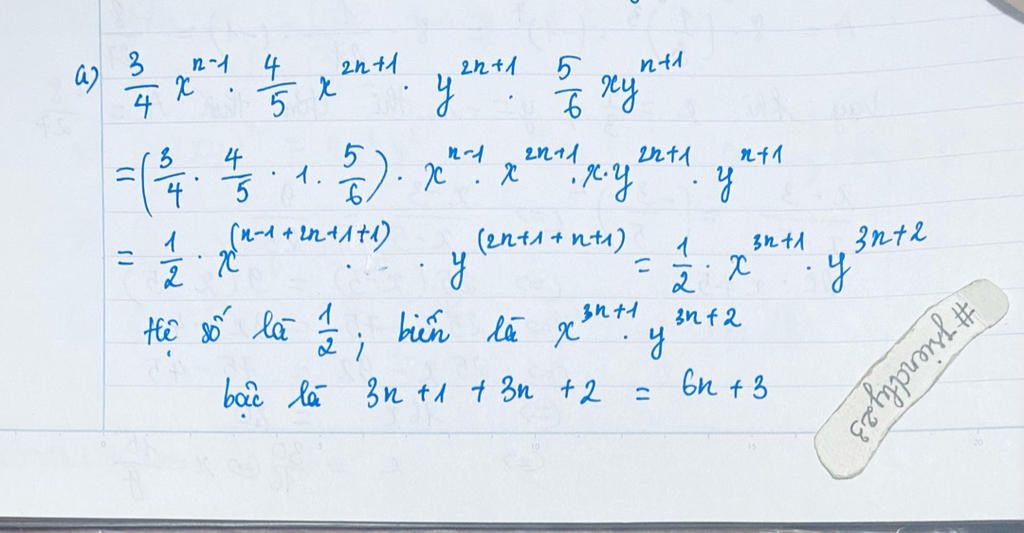 a) 3/4 x^(n-1) · 4/5 x^(2n+1) · y^(2n+1) · 5/6 xy^(n+1)
= (3/4 · 4/5 · 1 · 5/6) · x^(n-1) · x^(2n+1) · x · y^(2n+1) · y^(n+1)
= 1/2 · x^(n-1+2n+1+1) · y^(2n+1+n+1) = 1/2 · x^(3n+1) · y^(3n+2)
Hệ số là 1/2; biến là x^(3n+1) · y^(3n+2)
bậc là 3n+1 + 3n +2 = 6n + 3